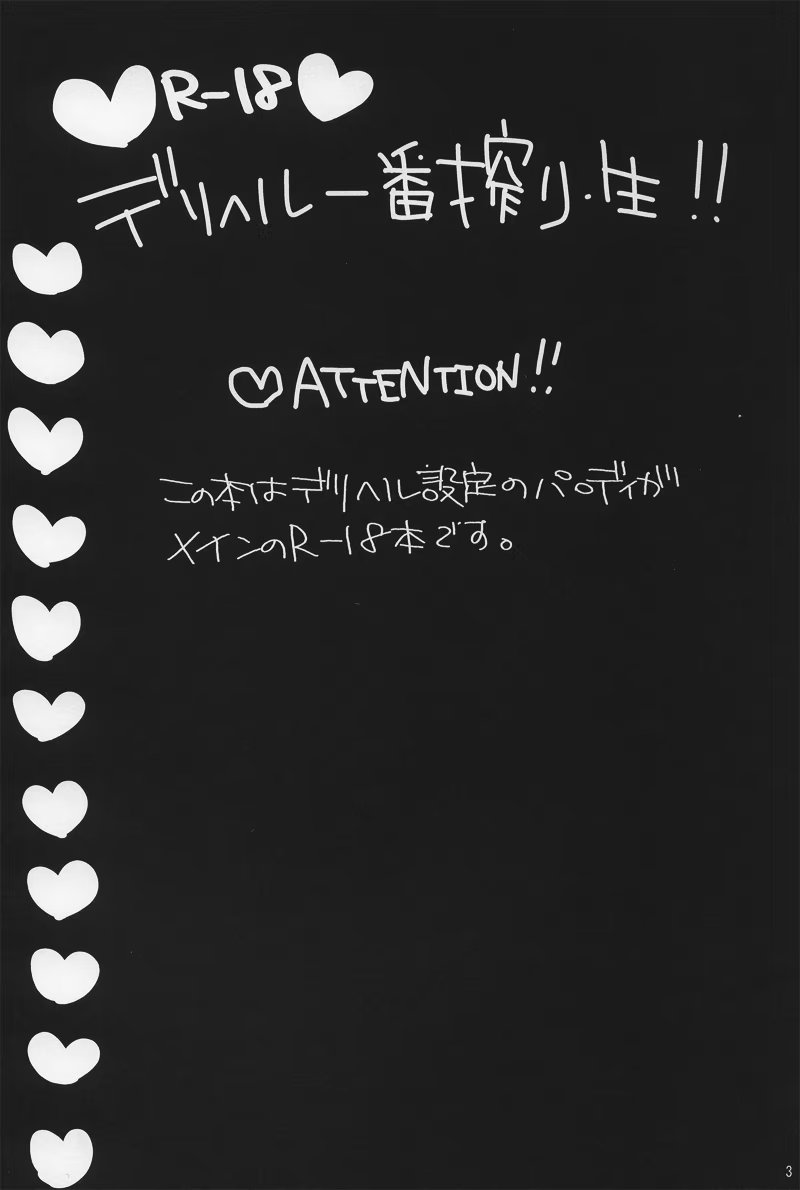 R-18
デリヘル一番搾り・生!!
ATTENTION!!
この本はデリヘル設定のパロディが
メインのR-18本です。
3